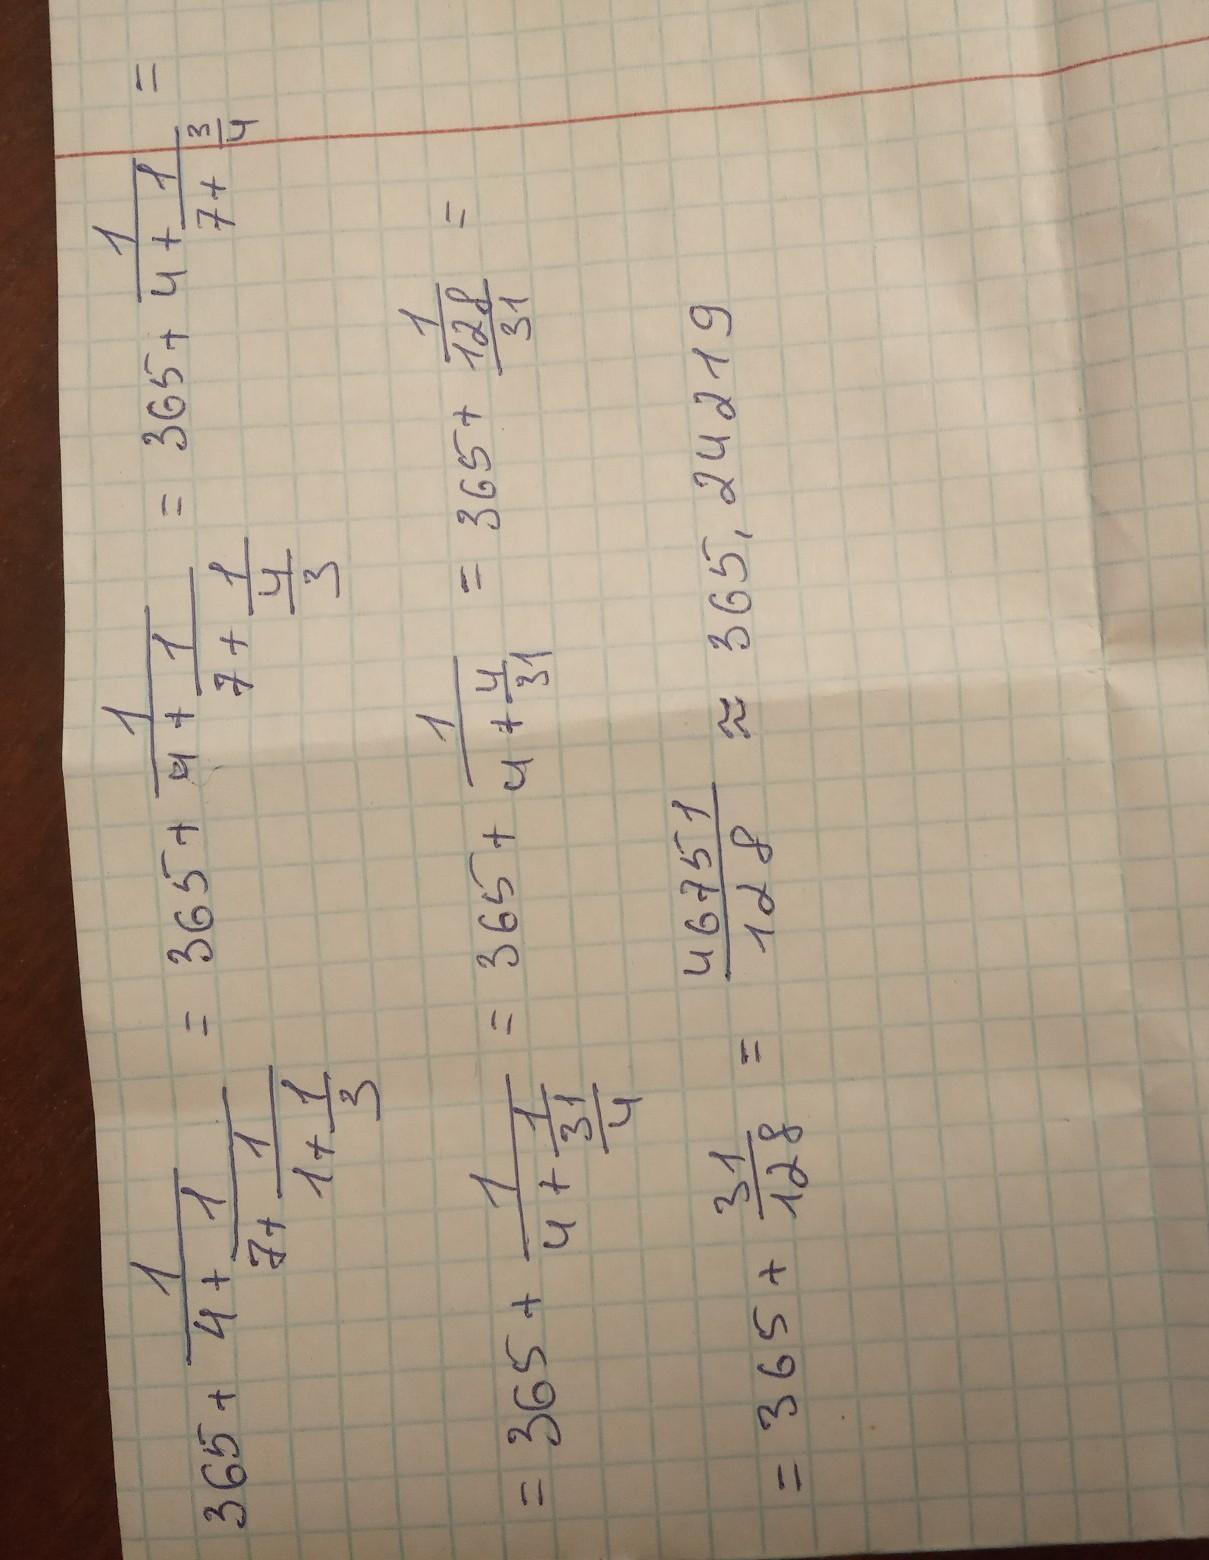 365 + 1/(4 + 1/(7 + 1/(1 + 1/3))) = 365 + 1/(4 + 1/(7 + 1/(4/3))) = 365 + 1/(4 + 1/(7 + 3/4)) =
= 365 + 1/(4 + 1/(31/4)) = 365 + 1/(4 + 4/31) = 365 + 1/(128/31) =
= 365 + 31/128 = 46751/128 ≈ 365,24219